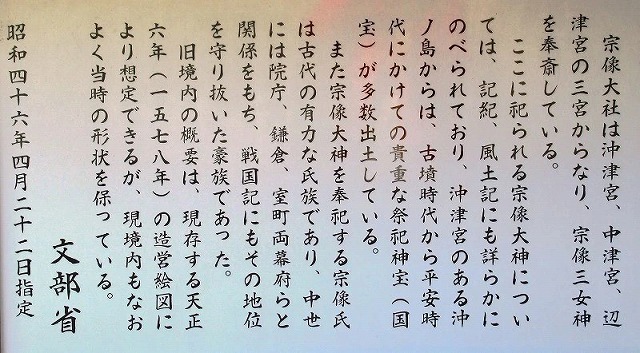 宗像大社は沖津宮、中津宮、辺
津宮の三宮からなり、宗像三女神
を奉斎している。
ここに祀られる宗像大神につい
ては、記紀、風土記にも詳らかに
のべられており、沖津宮のある沖
ノ島からは、古墳時代から平安時
代にかけての貴重な祭祀神宝（国
宝）が多数出土している。
また宗像大神を奉祀する宗像氏
は古代の有力な氏族であり、中世
には院庁、鎌倉、室町両幕府らと
関係をもち、戦国記にもその地位
を守り抜いた豪族であった。
旧境内の概要は、現存する天正
六年（一五七八年）の造営絵図に
より想定できるが、現境内もなお
よく当時の形状を保っている。
文部省
昭和四十六年四月二十二日指定